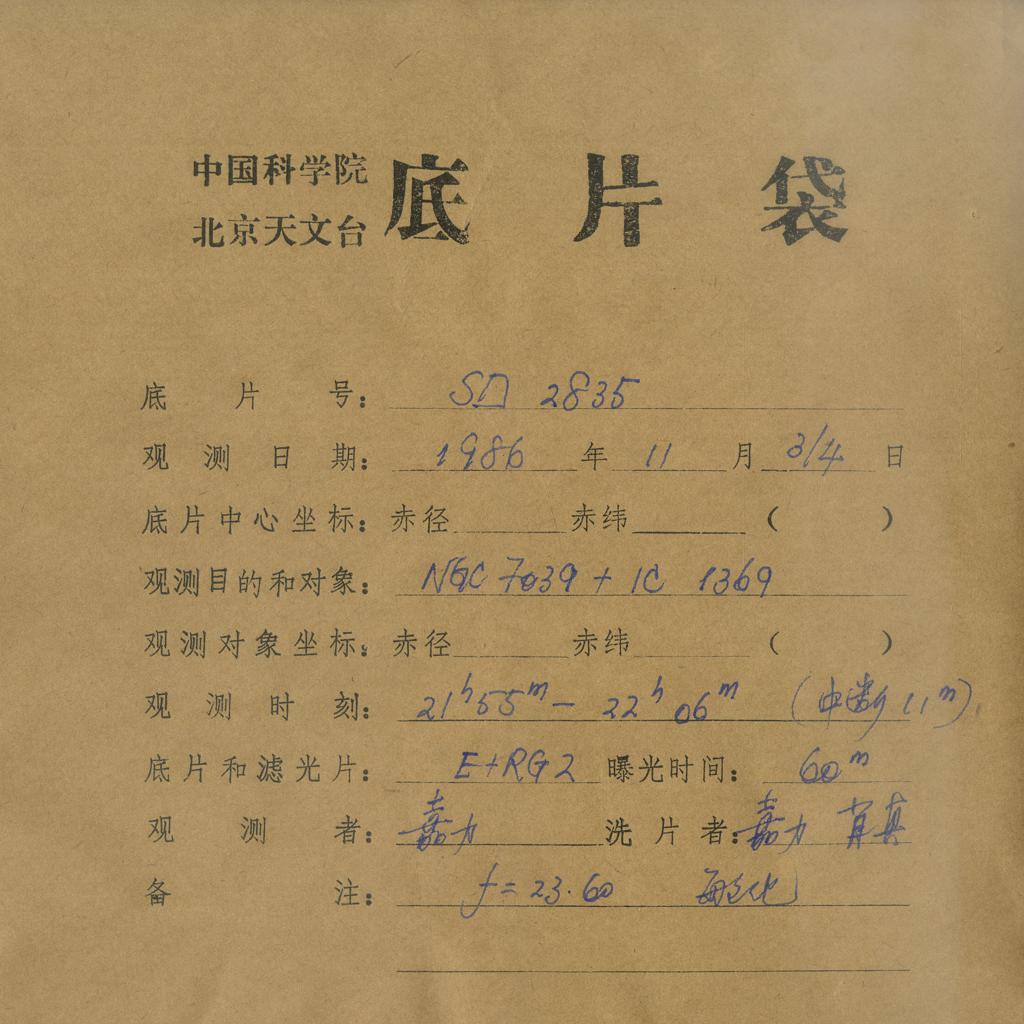 中国科学院
北京天文台
底片袋
底片号： SD 2835
观测日期： 1986 年 11 月 3/4 日
底片中心坐标：赤径 赤纬 （ ）
观测目的和对象： NGC 7039 + IC 1369
观测对象坐标：赤径 赤纬 （ ）
观测时刻： 21ʰ55ᵐ — 22ʰ06ᵐ (中断11ᵐ)
底片和滤光片： E+RG2 曝光时间： 60ᵐ
观测者： 嘉力 洗片者： 嘉力 肖真
备注： f = 23.60 敏化